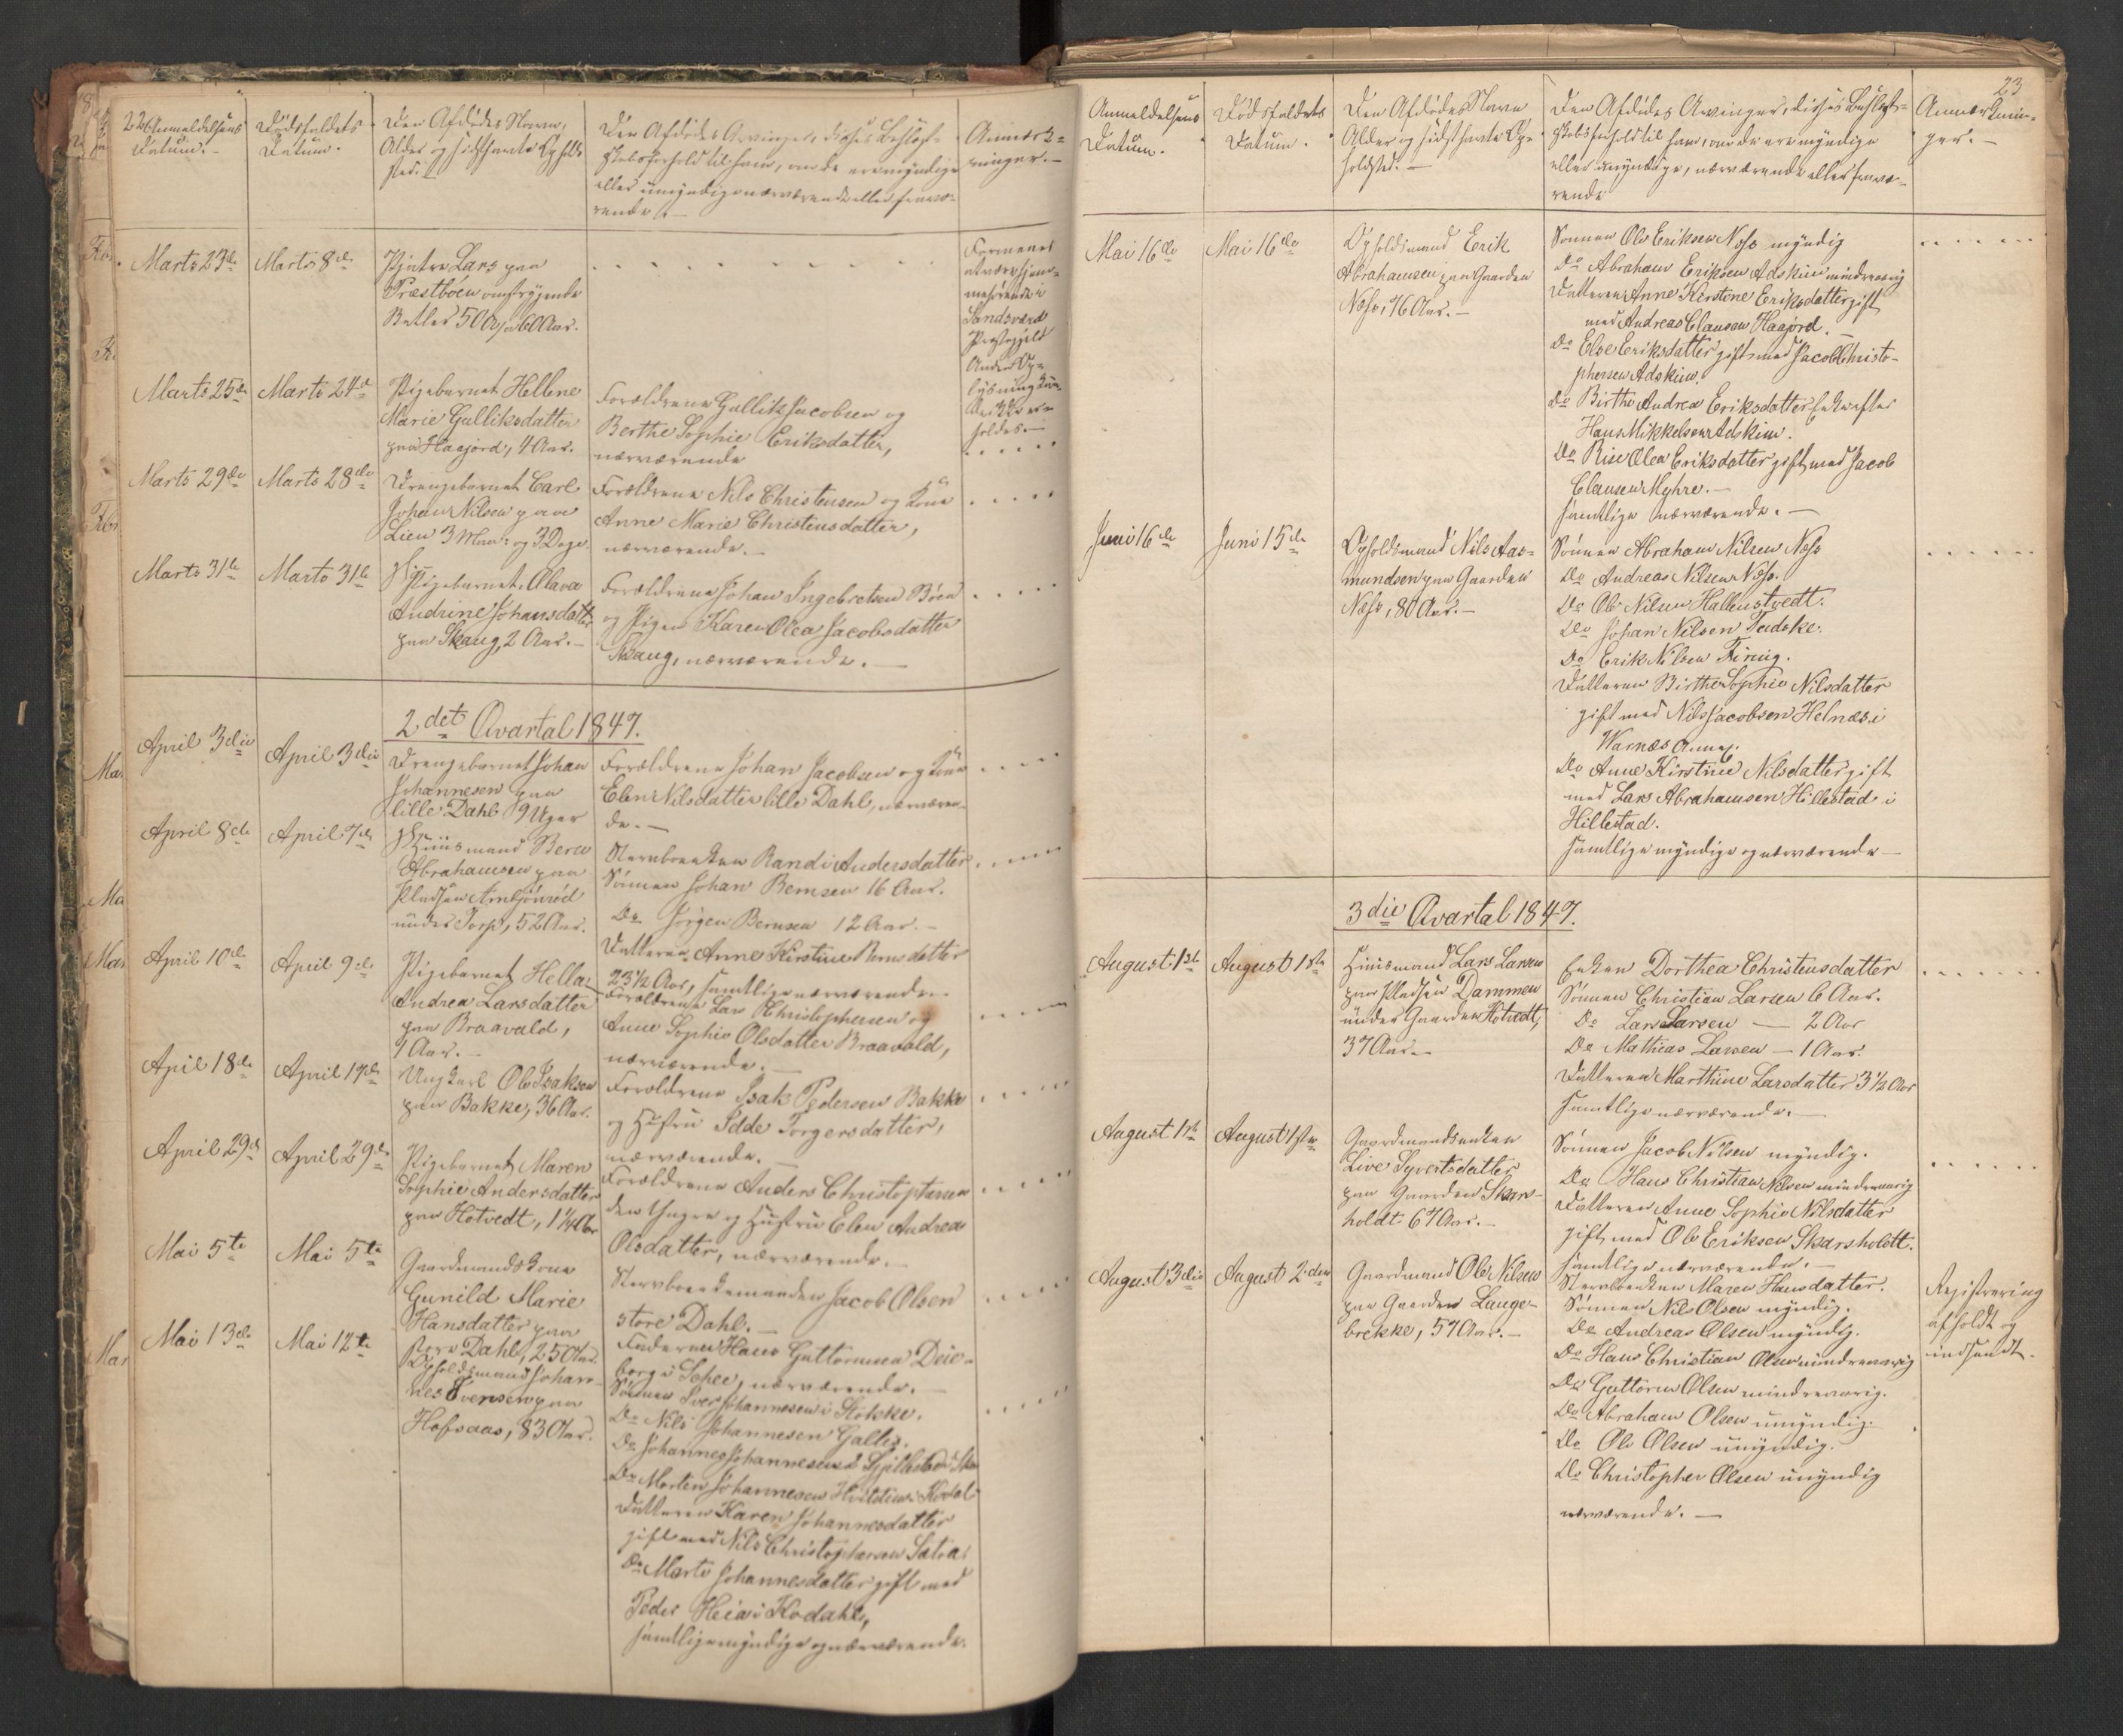 22
Anmeldelsens
Datum.
Dødsfaldets
Datum.
Den Afdødes Navn,
Alder og sidsthavte Opholds
sted.
Den Afdødes Arvinger, disses Beslegt-
skabsforhold til ham, om de ere myndige
eller umyndige nærværende eller fravæ-
rende.
Anmærk-
ninger.
Marts 23de
Marts 8de
Lars paa
Præstboen omstrygende
Betler 50 a 60 Aar.
Formenes
at være hjem-
mehørende i
Sandsværd
Præstegjeld
Anden Op-
lysning kun-
de ikke er-
holdes.
Marts 25de
Marts 24de
Pigebarnet Hellene
Marie Gulliksdatter
paa Haajord, 4 Aar.
Forældrene Gullik Jacobsen og
Berthe Sophie Eriksdatter,
nærværende
Marts 29de
Marts 28de
Drengebarnet Carl
Johan Nilsen paa
Lien 3 Maan: og 3 Dage.
Forældrene Nils Christensen og Kone
Anne Marie Christensdatter,
nærværende.
Marts 31te
Marts 31te
Pigebarnet Olava
Andrine Johansdatter
paa Skaug, 2 Aar.
Forældrene Johan Ingebretsen Böen
og Pigen Karen Olea Jacobsdatter
Skaug, nærværende.
2det Qvartal 1847.
April 3die
April 3die
Drengebarnet Johan
Johannesen paa
lille Dahl 9 Uger
Forældrene Johan Jacobsen og Kone
Elen Nilsdatter lille Dahl, nærværen-
de.
April 8de
April 7de
Huusmand Bern
Abrahamsen paa
Pladsen Arnbjönröd
under Torp, 52 Aar.
Stervboenken Randi Andersdatter
Sønnen Johan Bernsen 16 Aar.
Do Jörgen Bernsen 12 Aar.
Datteren Anne Kirstine Bernsdatter
23 1/2 Aar, samtlige nærværende.
April 10de
April 9de
Pigebarnet Hella
Andrea Larsdatter
paa Braavald,
1 Aar.
Forældrene Lars Christophersen og
Anne Sophie Olsdatter Braavald,
nærværende.
April 18de
April 17de
Ungkarl Ole Isaksen
paa Bakke, 36 Aar.
Forældrene Isak Pedersen Bakke
og Hustru Idde Torgersdatter,
nærværende.
April 29de
April 29de
Pigebarnet Maren
Sophie Andersdatter
paa Hotvedt, 1 1/4 Aar
Forældrene Anders Christophersen
den Yngre og Hustru Elen Andrea
Olsdatter, nærværende.
Mai 5te
Mai 5te
Gaardmandskone
Gunild Marie
Hansdatter paa
store Dahl, 25 Aar.
Stervboenkemanden Jacob Olsen
store Dahl.
Faderen Hans Guttormsen
i Schee, nærværende.
Mai 13de
Mai 12te
Opholdsmand Johan-
nes Evensen paa
Hofsaas, 83 Aar.
Sønnen Iver Johannesen i Stokke.
Do Nils Johannesen Galtis.
Do Johannes Johannesen
Do Morten Johannesen i Kodal
Datteren Karen Johannesdatter
gift med Nils Christophersen
Do Marte Johannesdatter gift med
Peder Heia i Kodahl,
samtlige myndige og nærværende.
23
Anmeldelsens
Datum.
Dødsfaldets
Datum.
Den Afdødes Navn
Alder og sidsthavte Op-
holdsted.
Den Afdødes Arvinger, disses Beslegt-
skabsforhold til ham, om de ere myndige
eller umyndige, nærværende eller fravæ-
rende
Anmærknin-
ger.
Mai 16de
Mai 16de
Opholdsmand Erik
Abrahamsen paa Gaarden
Næss, 76 Aar.
Sønnen Ole Eriksen Næss myndig
Do Abraham Eriksen Adskim mindreaarig
Datteren Anne Kirstine Eriksdatter gift
med Andreas Clausen Haajord.
Do Else Eriksdatter gift med Jacob Christo-
phersen Adskim.
Do Birthe Andrea Eriksdatter Enke efter
Hans Mikkelsen Adskim.
Do Rise Olea Eriksdatter gift med Jacob
Clausen Myhre.
samtlige nærværende.
Juni 16de
Juni 15de
Opholdsmand Nils Aas-
mundsen paa Gaarden
Næss, 80 Aar.
Sønnen Abraham Nilsen Næss
Do Andreas Nilsen Næss.
Do Ole Nilsen Hallenstvedt.
Do Johan Nilsen Tadske.
Do Erik Nilsen Firing.
Datteren Birthe Sophie Nilsdatter
gift med Nils Jacobsen Helnæs i
Warnæs Annex.
Do Anne Kirstine Nilsdatter gift
med Lars Abrahamsen Hillestad i
Hillestad.
samtlige myndige og nærværende
3die Qvartal 1847.
August 1ste
August 1ste
Huusmand Lars Larsen
paa Pladsen Dammen
under Gaarden Hotvedt,
37 Aar.
Enken Dorthea Christensdatter
Sønnen Christian Larsen 6 Aar.
Do Lars Larsen — 2 Aar
Do Mathias Larsen — 1 Aar.
Datteren Marthine Larsdatter 3 1/2 Aar
samtlige nærværende.
August 1ste
August 1ste
Gaardmandsenken
Live Syvertsdatter
paa Gaarden Skars-
holdt 67 Aar.
Sønnen Jacob Nilsen myndig.
Do Hans Christian Nilsen mindreaarig
Datteren Anne Sophie Nilsdatter
gift med Ole Eriksen Skarsholdt.
samtlige nærværende.
August 3die
August 2den
Gaardmand Ole Nilsen
paa Gaarden Lange-
brekke, 57 Aar.
Stervboenken Maren Hansdatter.
Sønnen Nils Olsen myndig.
Do Andreas Olsen myndig.
Do Hans Christian Olsen mindreaarig
Do Guttorm Olsen mindreaarig.
Do Abraham Olsen umyndig.
Do Ole Olsen umyndig.
Do Christopher Olsen umyndig
nærværende.
Registrering
afholdt og
indsendt.